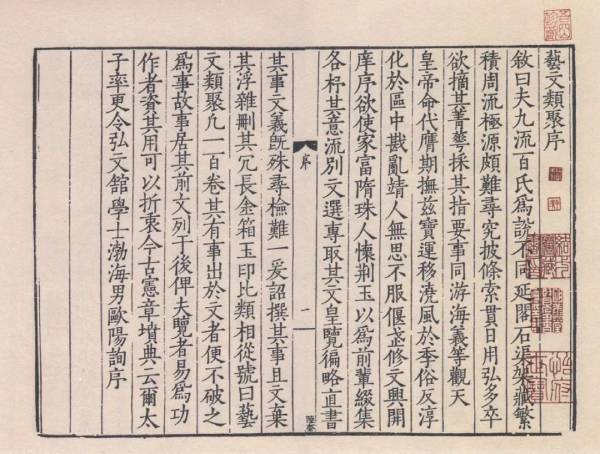 藝文類聚序
敘曰夫九流百氏爲説不同延閣石渠架藏繁
積周流極源頗難尋究披條索貫日用弘多卒
欲摘其菁華採其指要事同游海義等觀天
皇帝命代膺期撫兹寶運移澆風於季俗反淳
化於區中戡亂靖人無思不服偃武修文興開
庠序欲使家富隋珠人懷荆玉以爲前輩綴集
各杼其意流别文選專取其文皇覽徧略直書
序 一
其事文義旣殊尋檢難一爰詔撰其事且文棄
其浮雜刪其冗長金箱玉印比類相從號曰藝
文類聚凡一百卷其有事出於文者便不破之
爲事故事居其前文列于後俾夫覽者易爲功
作者資其用可以折衷今古憲章墳典云爾太
子率更令弘文館學士渤海男歐陽詢序